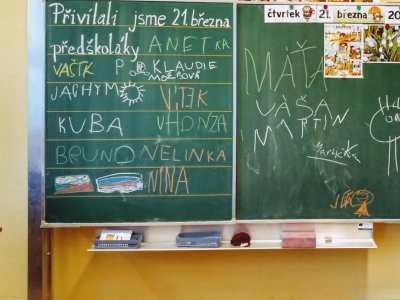 Přivítali jsme 21. března
předškoláky ANETKA
VAŠÍK KLAUDIE
JÁCHYM VÍTEK
KUBA VHONZA
BRUNO NELINKA
NINA
čtvrtek 21. března 20
MÁŤA
VÁŠA
MARTIN
Martička